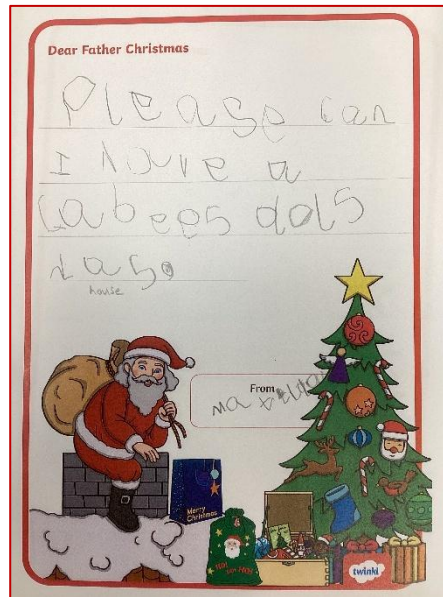 Dear Father Christmas
Please can
I have a
Gabees dols
has.
house
From
Merry
Christmas
twinkl